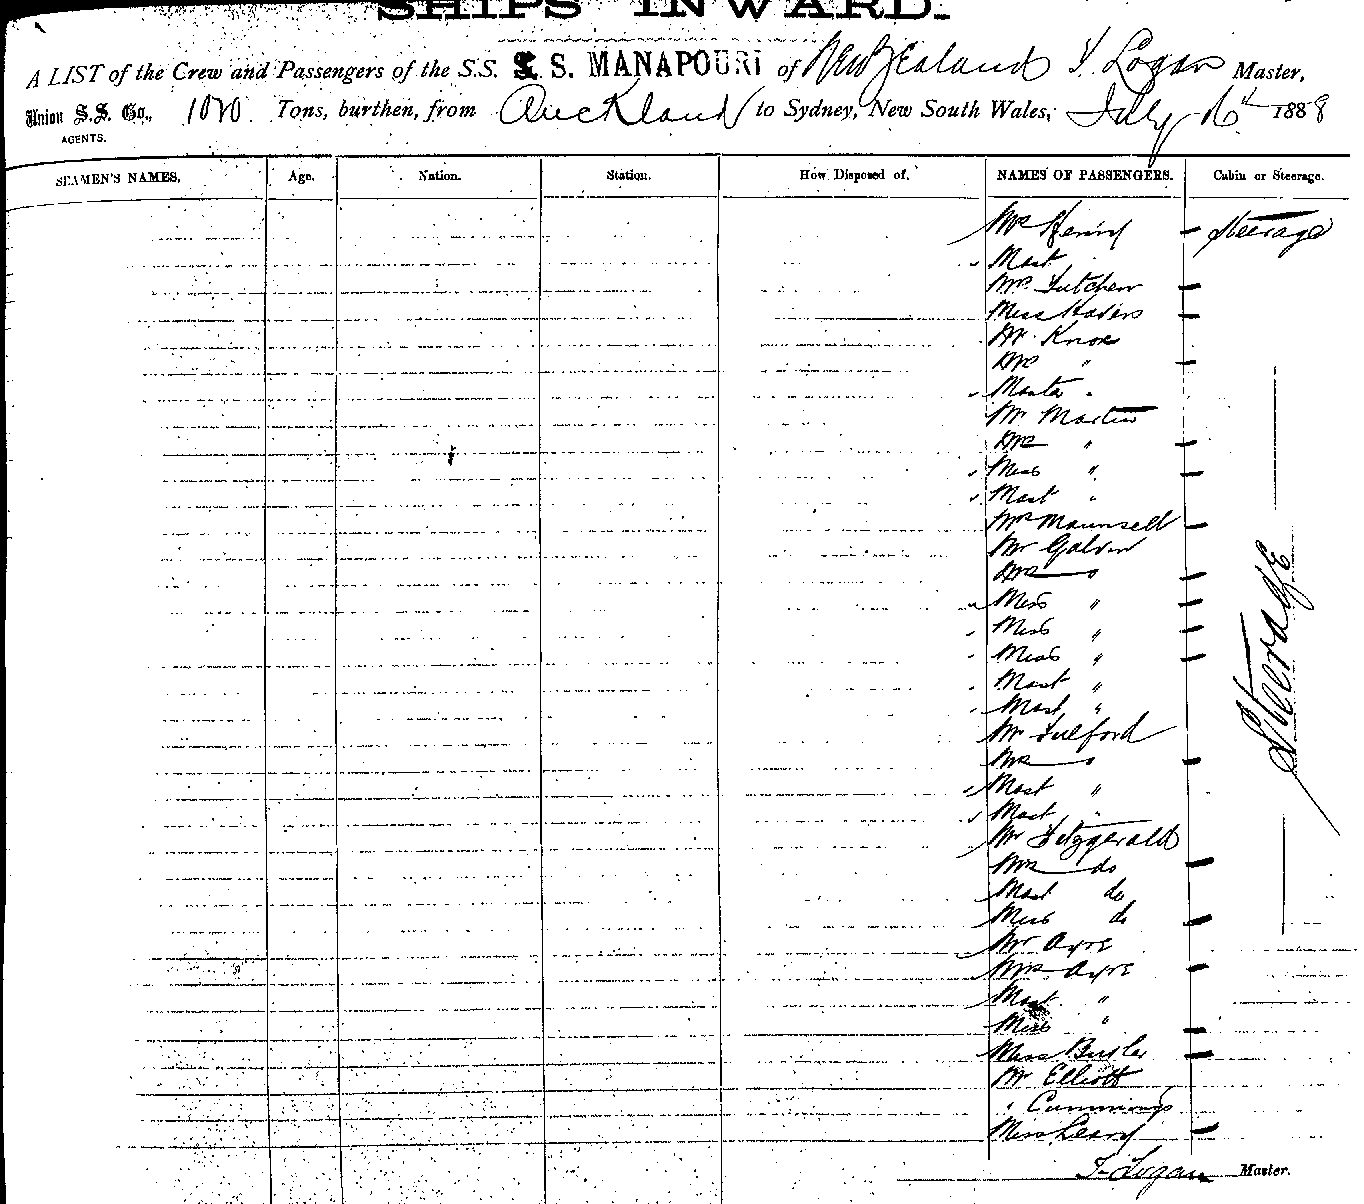 SHIPS INWARD.
A LIST of the Crew and Passengers of the S.S. S. S. MANAPOURI of New Zealand, Logan Master,
Union S.S. Co., Tons, burthen, from Auckland to Sydney, New South Wales, July 16th 1888
AGENTS.
SEAMEN'S NAMES. Age. Nation. Station. How Disposed of. NAMES OF PASSENGERS. Cabin or Steerage.
Mrs Steerage
Mast
Mrs
Miss
Mr Knox
Mrs "
Master "
Mr Martin
Mrs "
Miss "
Mast "
Mrs Maunsell
Mr Galvin
Mrs "
Miss "
Miss "
Miss "
Mast "
Mast "
Mr Fulford
Mrs "
Mast "
Mast "
Mr Fitzgerald
Mrs do
Mast do
Miss do
Mr Ayre
Mrs Ayre
Mast "
Miss "
Miss Butler
Mr Elliott
" Cummings
Miss Leary
Steerage
Logan Master.